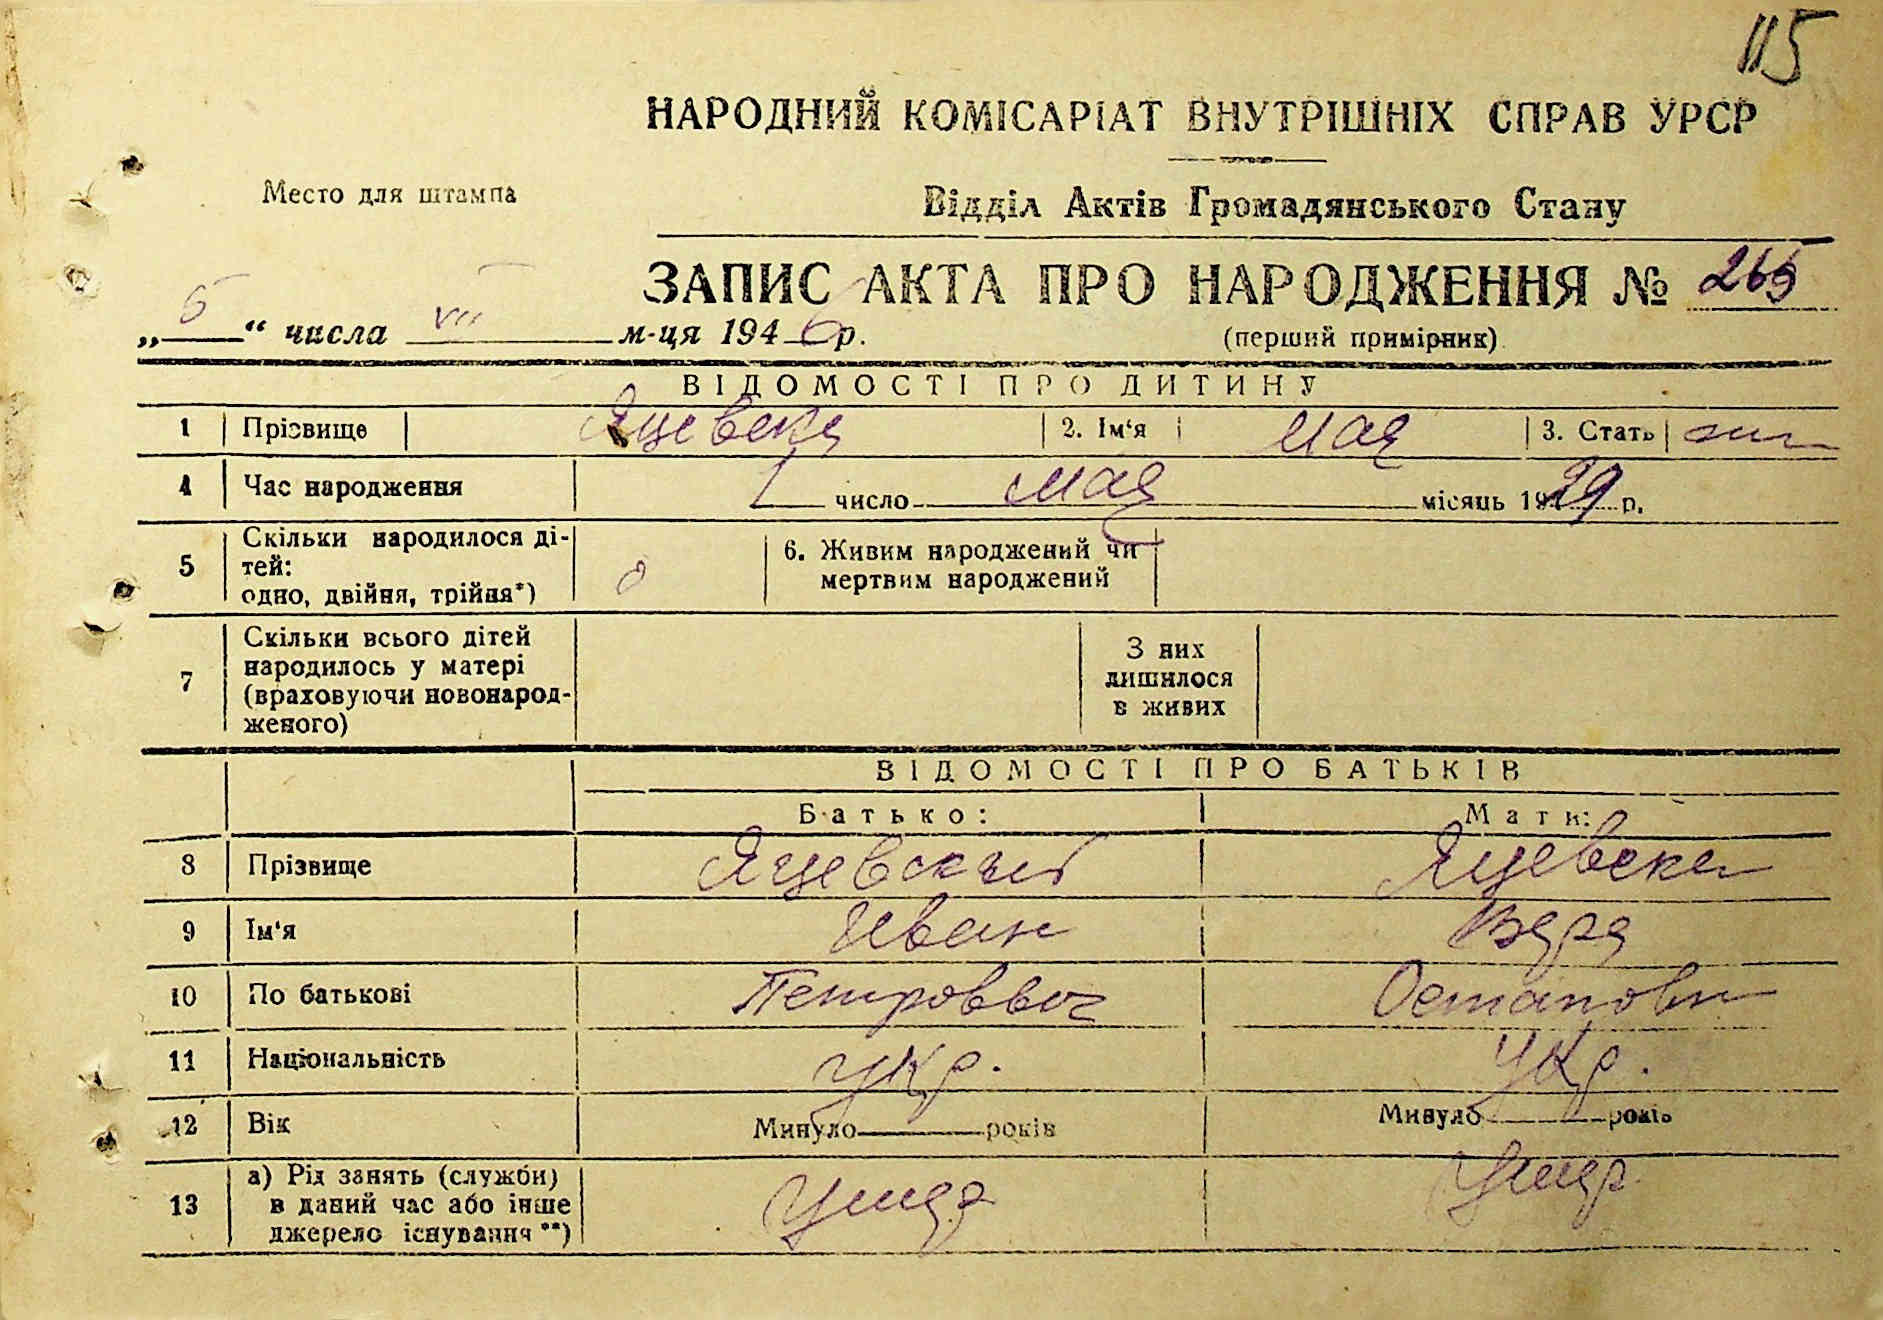 115
НАРОДНИЙ КОМІСАРІАТ ВНУТРІШНІХ СПРАВ УРСР
Место для штампа
Відділ Актів Громадянського Стану
ЗАПИС АКТА ПРО НАРОДЖЕННЯ № 265
„5“ числа VII м-ця 1946 р.
(перший примірник)
ВІДОМОСТІ ПРО ДИТИНУ
1 Прізвище Яцевска 2. Ім‘я Мая 3. Стать
4 Час народження 1 число мая місяць 1929 р.
5 Скільки народилося ді-
тей:
одно, двійня, трійня*) 6. Живим народжений чи
мертвим народжений
7 Скільки всього дітей
народилось у матері
(враховуючи новонарод-
женого) З них
лишилося
в живих
ВІДОМОСТІ ПРО БАТЬКІВ
Батько: Мати:
8 Прізвище Яцевский Яцевска
9 Ім‘я Иван Вера
10 По батькові Петрович Остаповн
11 Національність укр. укр.
12 Вік Минуло років Минуло років
13 а) Рід занять (служби)
в даний час або інше
джерело існування **)